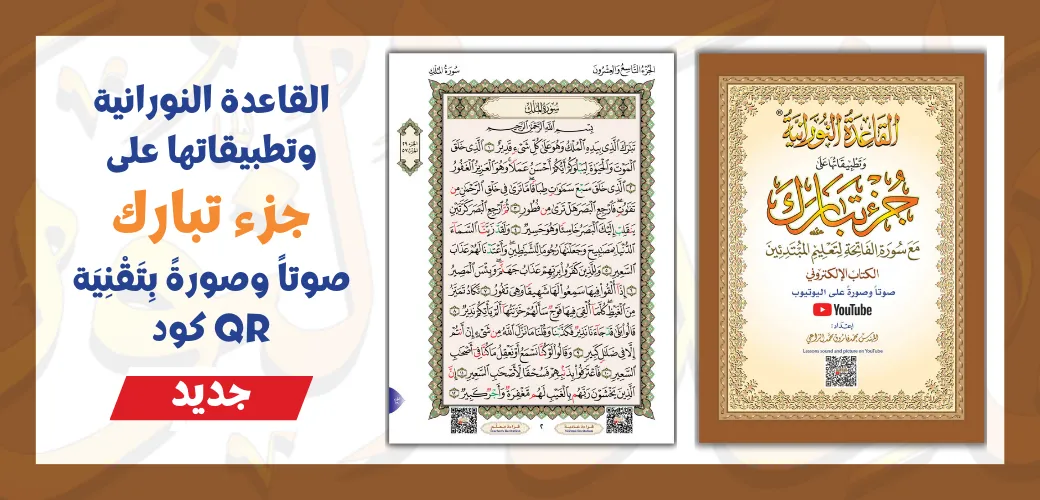 القاعدة النورانية
وتطبيقاتها على
جزء تبارك
صوتاً وصورةً بِتَقْنِيَة
QR كود
جديد
الجُزْءُ التَّاسِعُ وَالعِشْرُونَ
سُورَةُ المُلْكِ
سُورَةُ المُلْكِ
بِسْمِ اللَّهِ الرَّحْمَٰنِ الرَّحِيمِ
تَبَٰرَكَ ٱلَّذِى بِيَدِهِ ٱلْمُلْكُ وَهُوَ عَلَىٰ كُلِّ شَىْءٍ قَدِيرٌ ١ ٱلَّذِى خَلَقَ
ٱلْمَوْتَ وَٱلْحَيَوٰةَ لِيَبْلُوَكُمْ أَيُّكُمْ أَحْسَنُ عَمَلًا وَهُوَ ٱلْعَزِيزُ ٱلْغَفُورُ
٢ ٱلَّذِى خَلَقَ سَبْعَ سَمَٰوَٰتٍ طِبَاقًا مَّا تَرَىٰ فِى خَلْقِ ٱلرَّحْمَٰنِ مِن
تَفَٰوُتٍ فَٱرْجِعِ ٱلْبَصَرَ هَلْ تَرَىٰ مِن فُطُورٍ ٣ ثُمَّ ٱرْجِعِ ٱلْبَصَرَ كَرَّتَيْنِ
يَنقَلِبْ إِلَيْكَ ٱلْبَصَرُ خَاسِئًا وَهُوَ حَسِيرٌ ٤ وَلَقَدْ زَيَّنَّا ٱلسَّمَآءَ
ٱلدُّنْيَا بِمَصَٰبِيحَ وَجَعَلْنَٰهَا رُجُومًا لِّلشَّيَٰطِينِ وَأَعْتَدْنَا لَهُمْ عَذَابَ
ٱلسَّعِيرِ ٥ وَلِلَّذِينَ كَفَرُوا۟ بِرَبِّهِمْ عَذَابُ جَهَنَّمَ وَبِئْسَ ٱلْمَصِيرُ
٦ إِذَآ أُلْقُوا۟ فِيهَا سَمِعُوا۟ لَهَا شَهِيقًا وَهِىَ تَفُورُ ٧ تَكَادُ تَمَيَّزُ
مِنَ ٱلْغَيْظِ كُلَّمَآ أُلْقِىَ فِيهَا فَوْجٌ سَأَلَهُمْ خَزَنَتُهَآ أَلَمْ يَأْتِكُمْ نَذِيرٌ ٨
قَالُوا۟ بَلَىٰ قَدْ جَآءَنَا نَذِيرٌ فَكَذَّبْنَا وَقُلْنَا مَا نَزَّلَ ٱللَّهُ مِن شَىْءٍ إِنْ أَنتُمْ
إِلَّا فِى ضَلَٰلٍ كَبِيرٍ ٩ وَقَالُوا۟ لَوْ كُنَّا نَسْمَعُ أَوْ نَعْقِلُ مَا كُنَّا فِىٓ أَصْحَٰبِ
ٱلسَّعِيرِ ١٠ فَٱعْتَرَفُوا۟ بِذَنۢبِهِمْ فَسُحْقًا لِّأَصْحَٰبِ ٱلسَّعِيرِ ١١ إِنَّ
ٱلَّذِينَ يَخْشَوْنَ رَبَّهُم بِٱلْغَيْبِ لَهُم مَّغْفِرَةٌ وَأَجْرٌ كَبِيرٌ ١٢
قراءة معلم
٢
قراءة عادية
القَاعِدَةُ النُّورَانِيَّةُ
وَتَطْبِيقَاتُهَا عَلَى
جُزْءِ تَبَارَكَ
مَعَ سُورَةِ الفَاتِحَةِ لِتَعْلِيمِ المُبْتَدِئِينَ
الكتاب الإلكتروني
صوتاً وصورةً على اليوتيوب
YouTube
إعداد:
Lessons sound and picture on YouTube